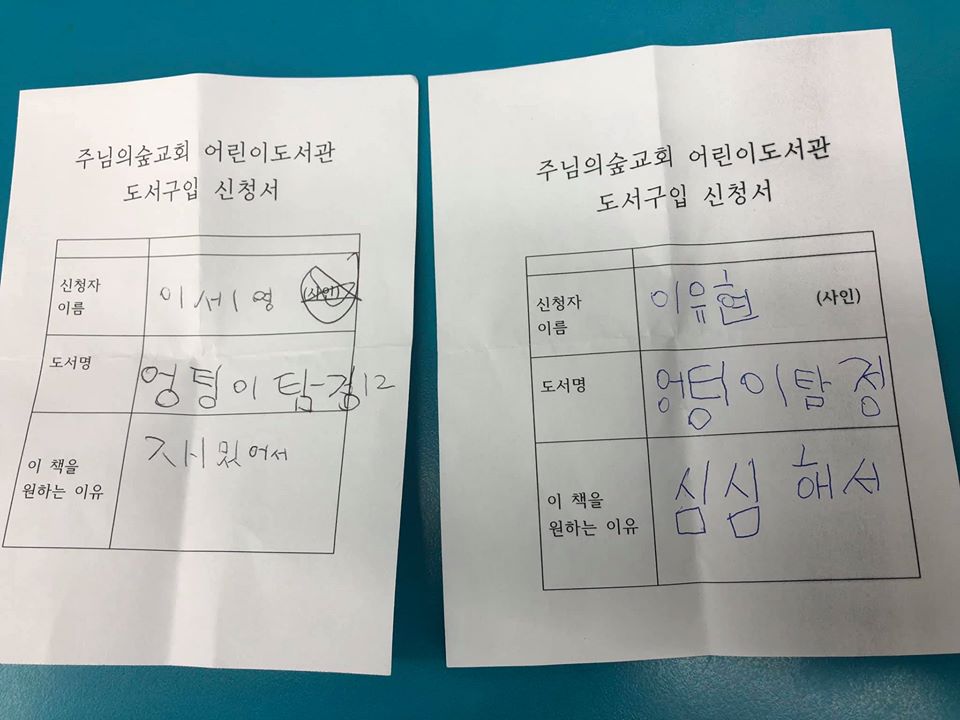 주님의숲교회 어린이도서관
도서구입 신청서
신청자
이름
이세영
(사인)
도서명
엉텅이탐정12
이 책을
원하는 이유
재미있어서
주님의숲교회 어린이도서관
도서구입 신청서
신청자
이름
이유현
(사인)
도서명
엉덩이탐정
이 책을
원하는 이유
심심해서